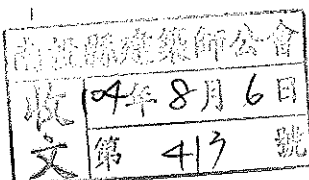 南投縣建築師公會
收文
104年8月6日
第 413 號